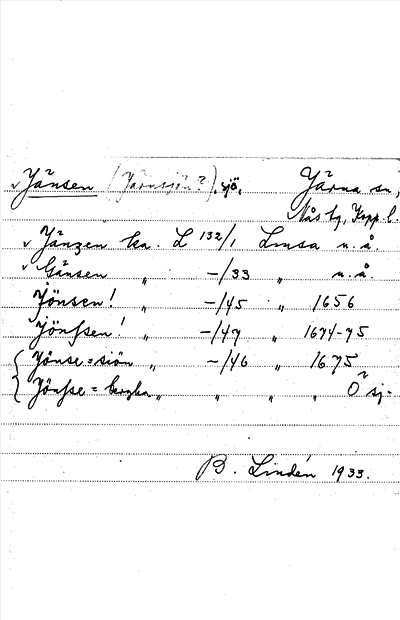 v Jånsen (Järnsjön?), sjö, Järna sn,
Nås tg, Kopp. l.
v Jånzen ka. L 132/1 Lmsa u. å.
v Gånsen " -/33 " u. å.
Jönsen! " -/45 " 1656
Jönssen! " -/47 " 1674-75
Jönse=siön " -/46 " 1675
Jönsse= " " "
B. Lindén 1933.